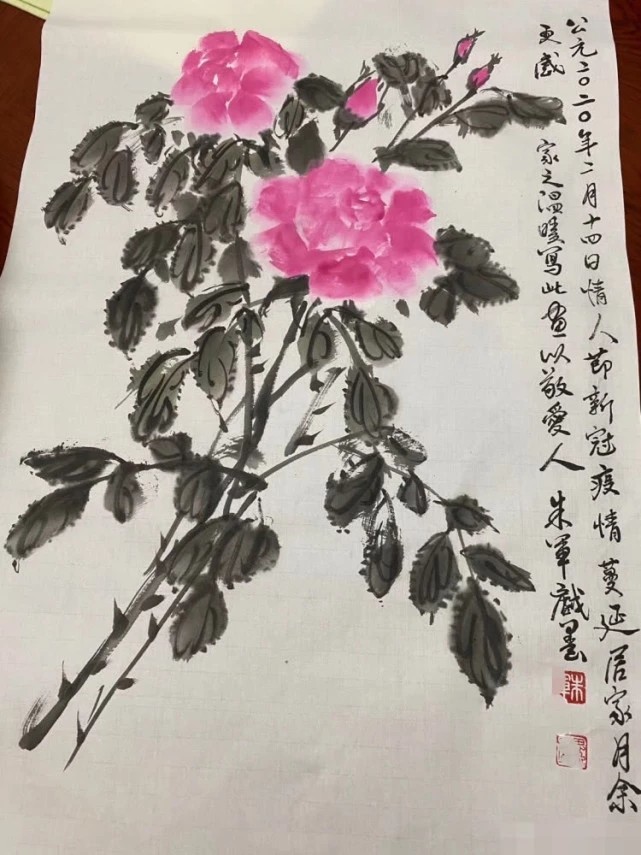 公元二〇二〇年二月十四日情人節新冠疫情蔓延居家月余
更感 家之温暖寫此畫以敬愛人 朱軍戲墨
朱